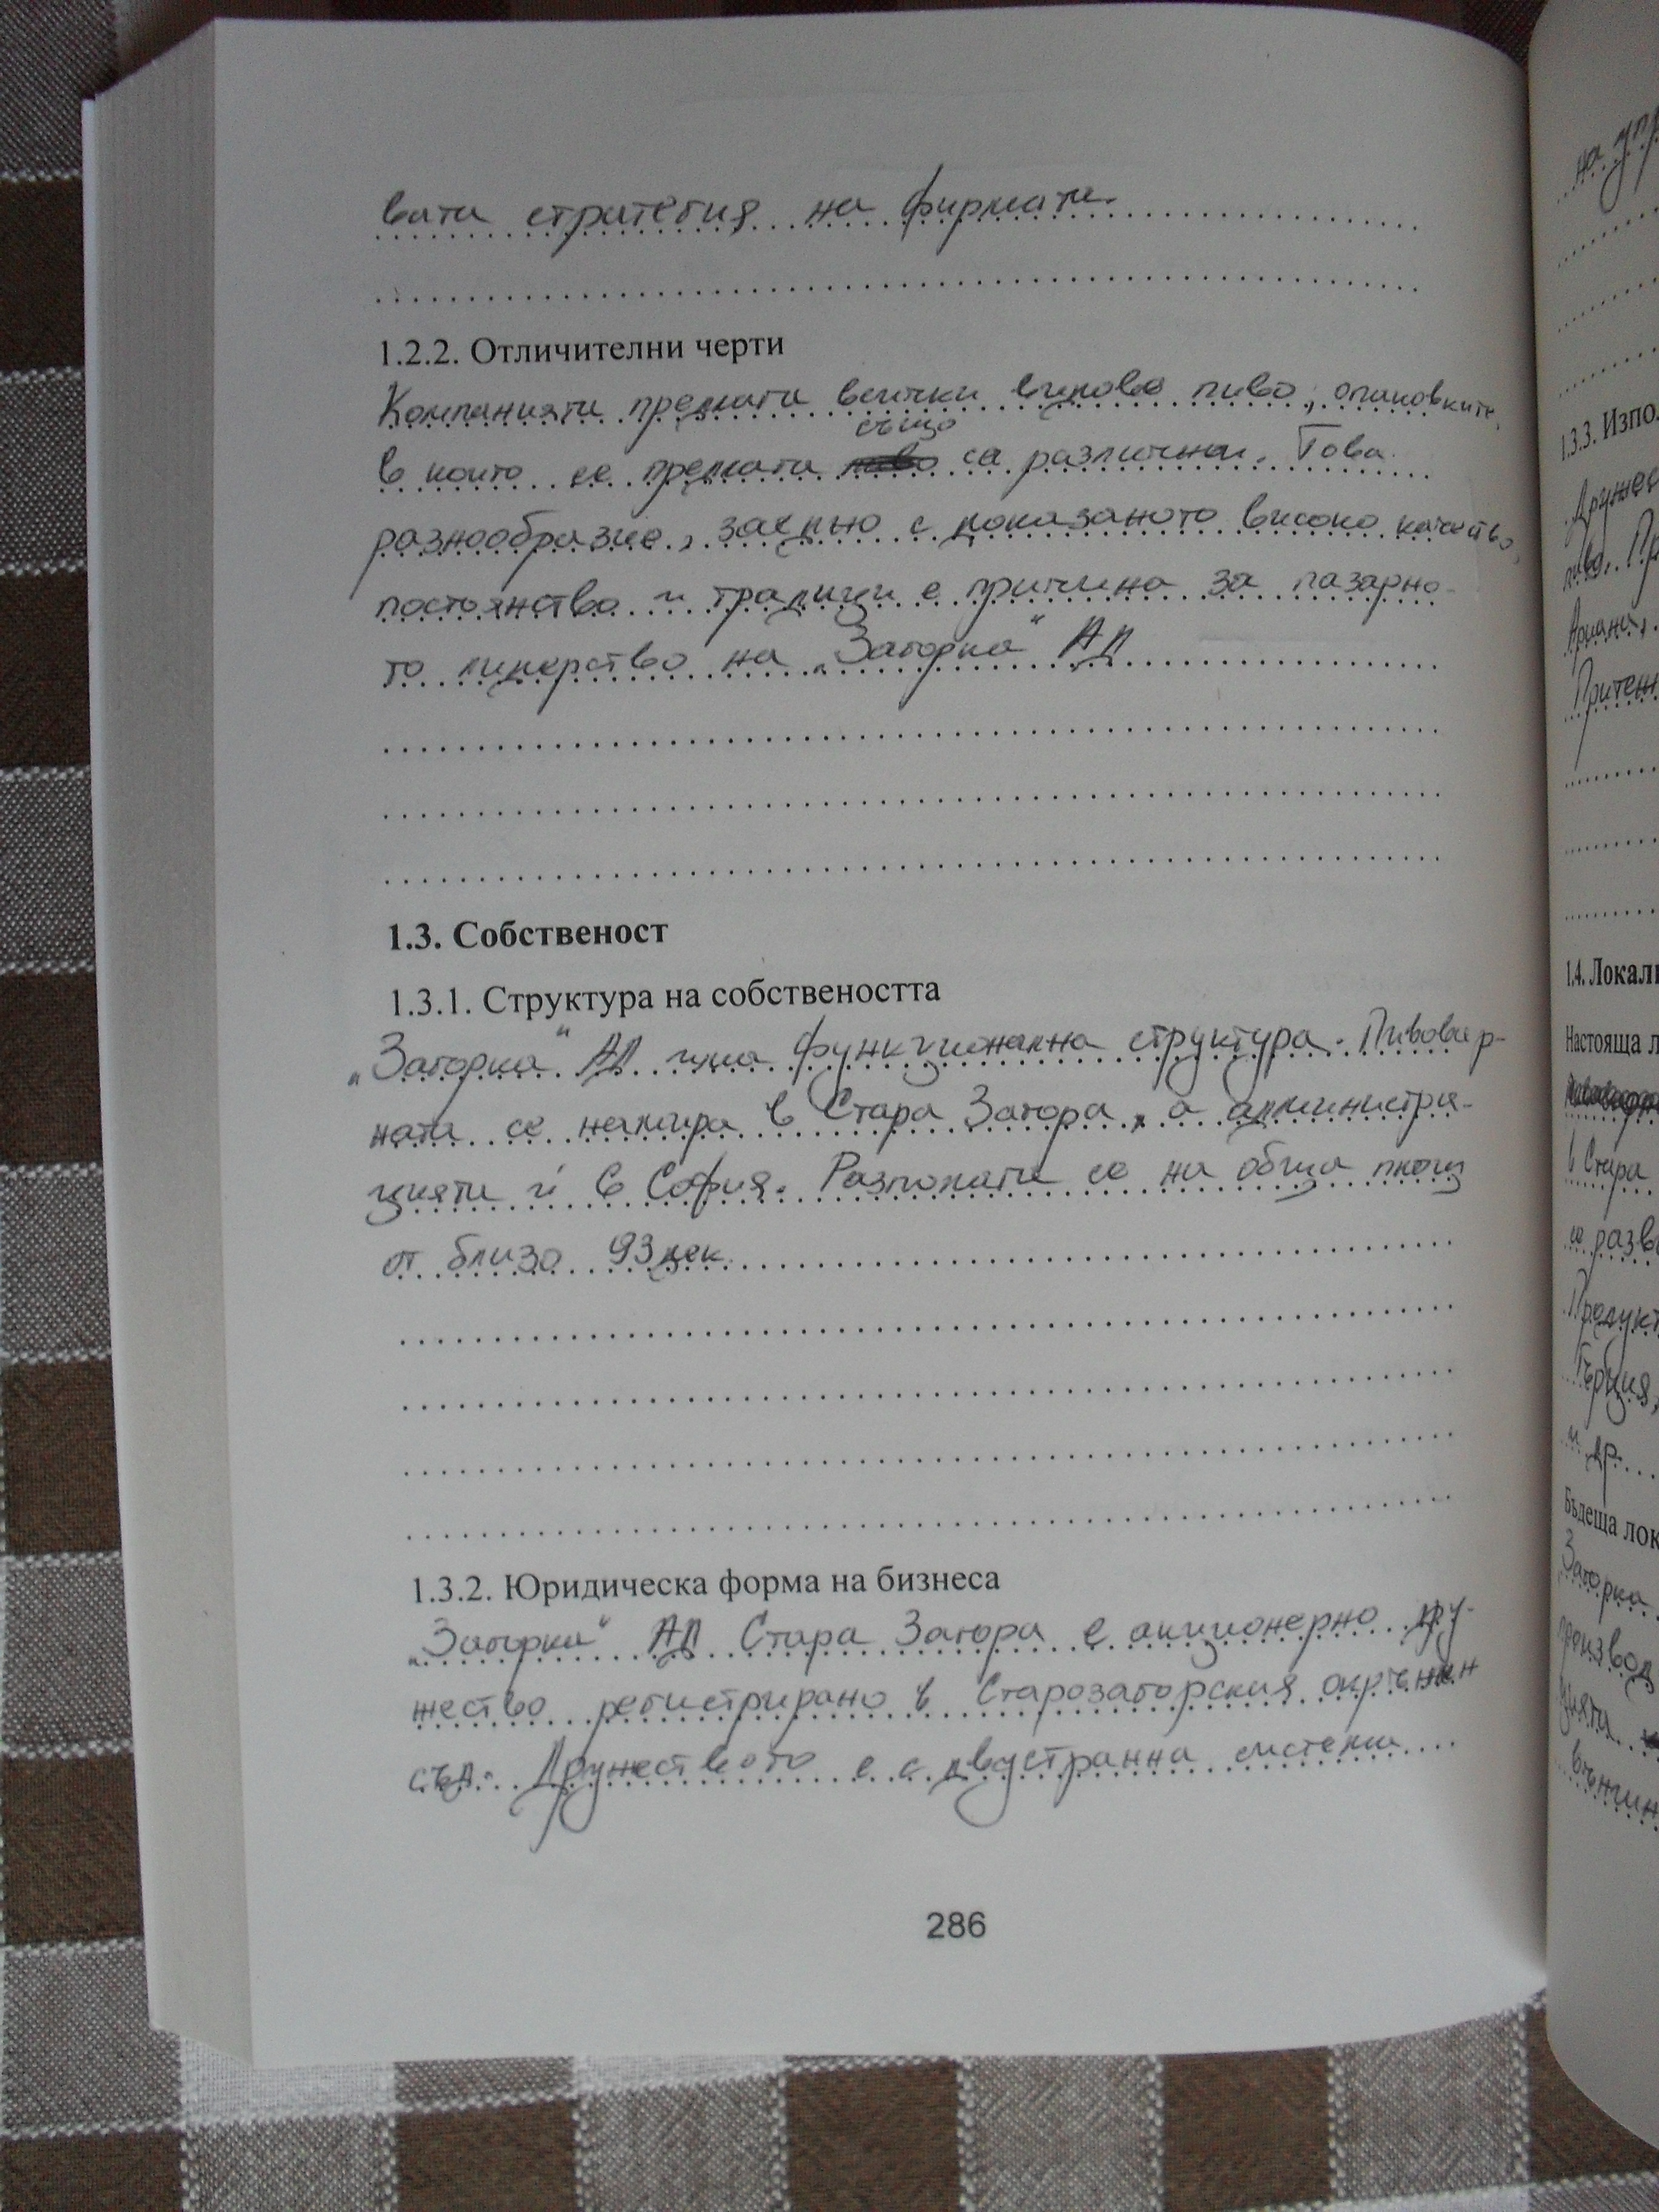 вата стратегия на фирмата.
1.2.2. Отличителни черти
Компанията предлага всички видове пиво, опаковките,
в които се предлага също са различни. Това
разнообразие, заедно с доказаното високо качество,
постоянство и традиции е причина за пазарно-
то лидерство на „Загорка" АД
1.3. Собственост
1.3.1. Структура на собствеността
„Загорка" АД има функционална структура. Пивовар-
ната се намира в Стара Загора, а администра-
цията ѝ в София. Разполага се на обща площ
от близо 93 дек.
1.3.2. Юридическа форма на бизнеса
„Загорка" АД Стара Загора е акционерно дру-
жество регистрирано в Старозагорския окръжен
съд. Дружеството е с двустранна система
286
на упр
1.3.3. Изпо
Дружес
пиво. Пр
Ариана,
Притеж
1.4. Локали
Настояща л
в Стара
се разв
Продукт
Гърция,
и др.
Бъдеща лок
Загорка
производ
цията
външн